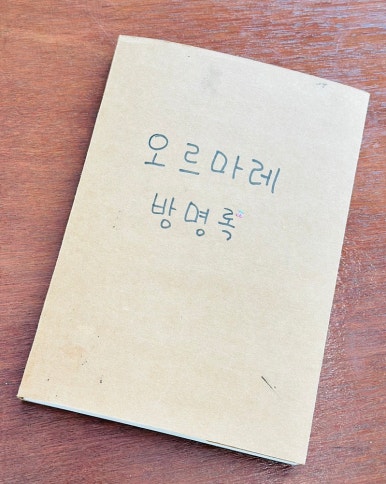 오르마레
방명록